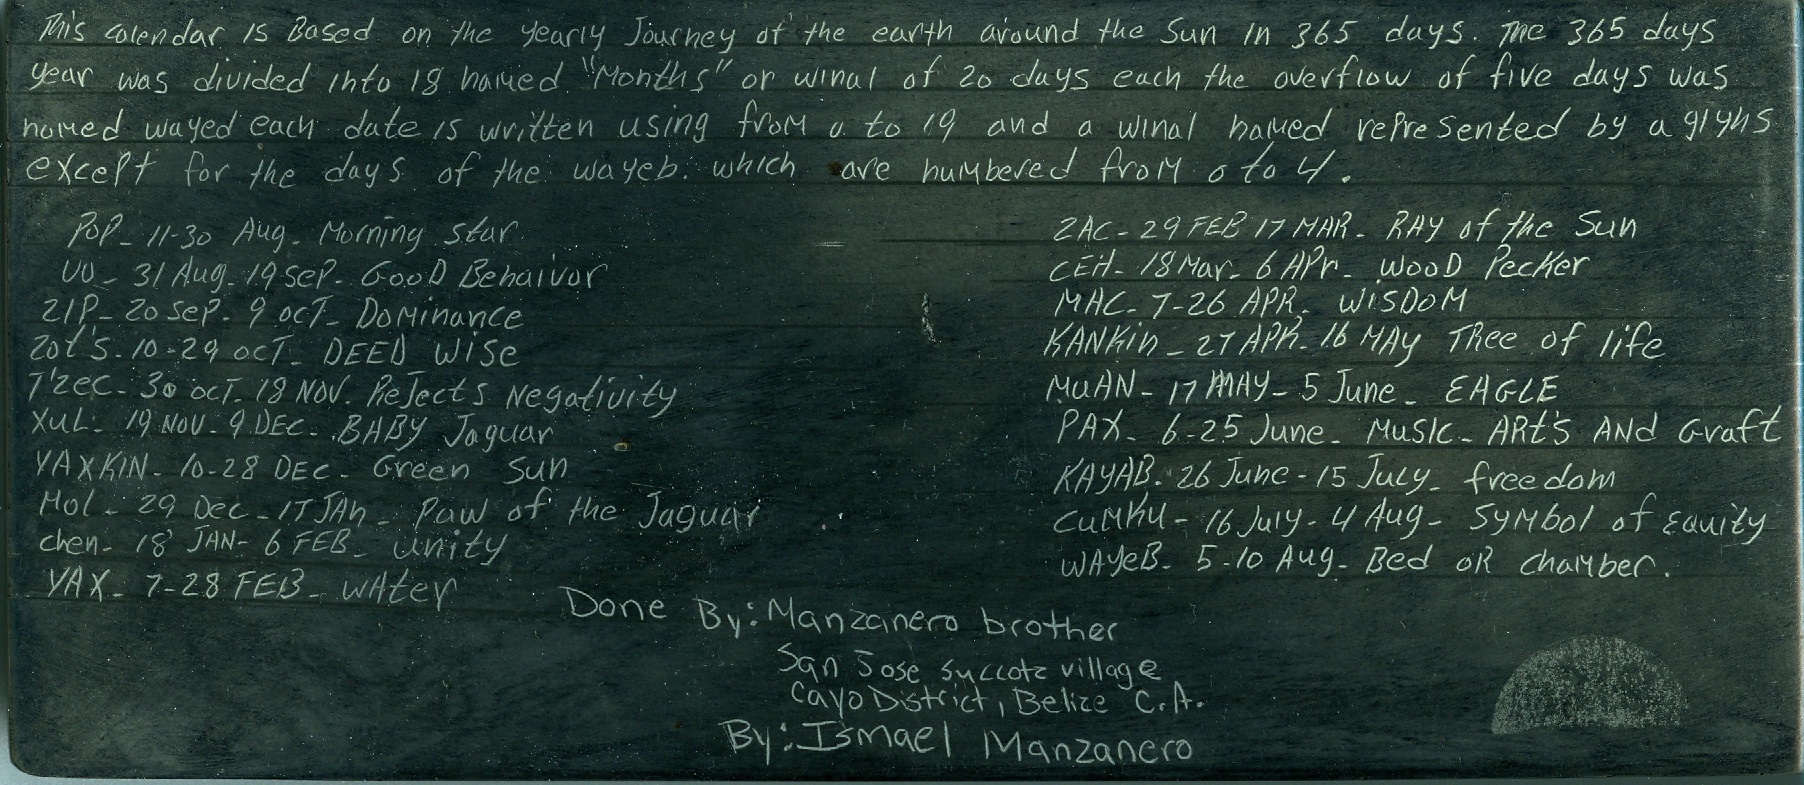 This calendar is Based on the yearly Journey of the earth around the Sun in 365 days. The 365 days
year was divided into 18 named "Months" or winal of 20 days each the overflow of five days was
named wayed each date is written using from 0 to 19 and a winal named represented by a glyhs
except for the days of the wayeb. which are numbered from 0 to 4.
POP- 11-30 Aug- Morning star
UO- 31 Aug-19 SEP- GOOD Behaivor
ZIP- 20 SEP- 9 OCT- DOMINANCE
Zot's-10-29 OCT- DEED WISE
T'zec- 30 OCT. 18 NOV. Rejects Negativity
XUL- 19 NOV-9 DEC- BABY Jaguar
YAXKIN- 10-28 DEC- Green Sun
Mol- 29 Dec-17 JAN- Paw of the Jaguar
chen- 18 JAN- 6 FEB- unity
YAX- 7-28 FEB- WAter
ZAC- 29 FEB 17 MAR- RAY of the Sun
CEH- 18 Mar- 6 APr- WOOD PecKer
MAC- 7-26 APR- WISDOM
KANKin- 27 APR-16 MAY Tree of life
MUAN- 17 MAY- 5 June- EAGLE
PAX- 6-25 June- MUSIC- ARt's ANd Graft
KAYAB- 26 June-15 July- freedom
CUMKU- 16 July-4 Aug- Symbol of Equity
WAYeB- 5-10 Aug- Bed OR Chamber.
Done By: Manzanero brother
San Jose Succotz village
Cayo District, Belize C.A.
By: Ismael Manzanero